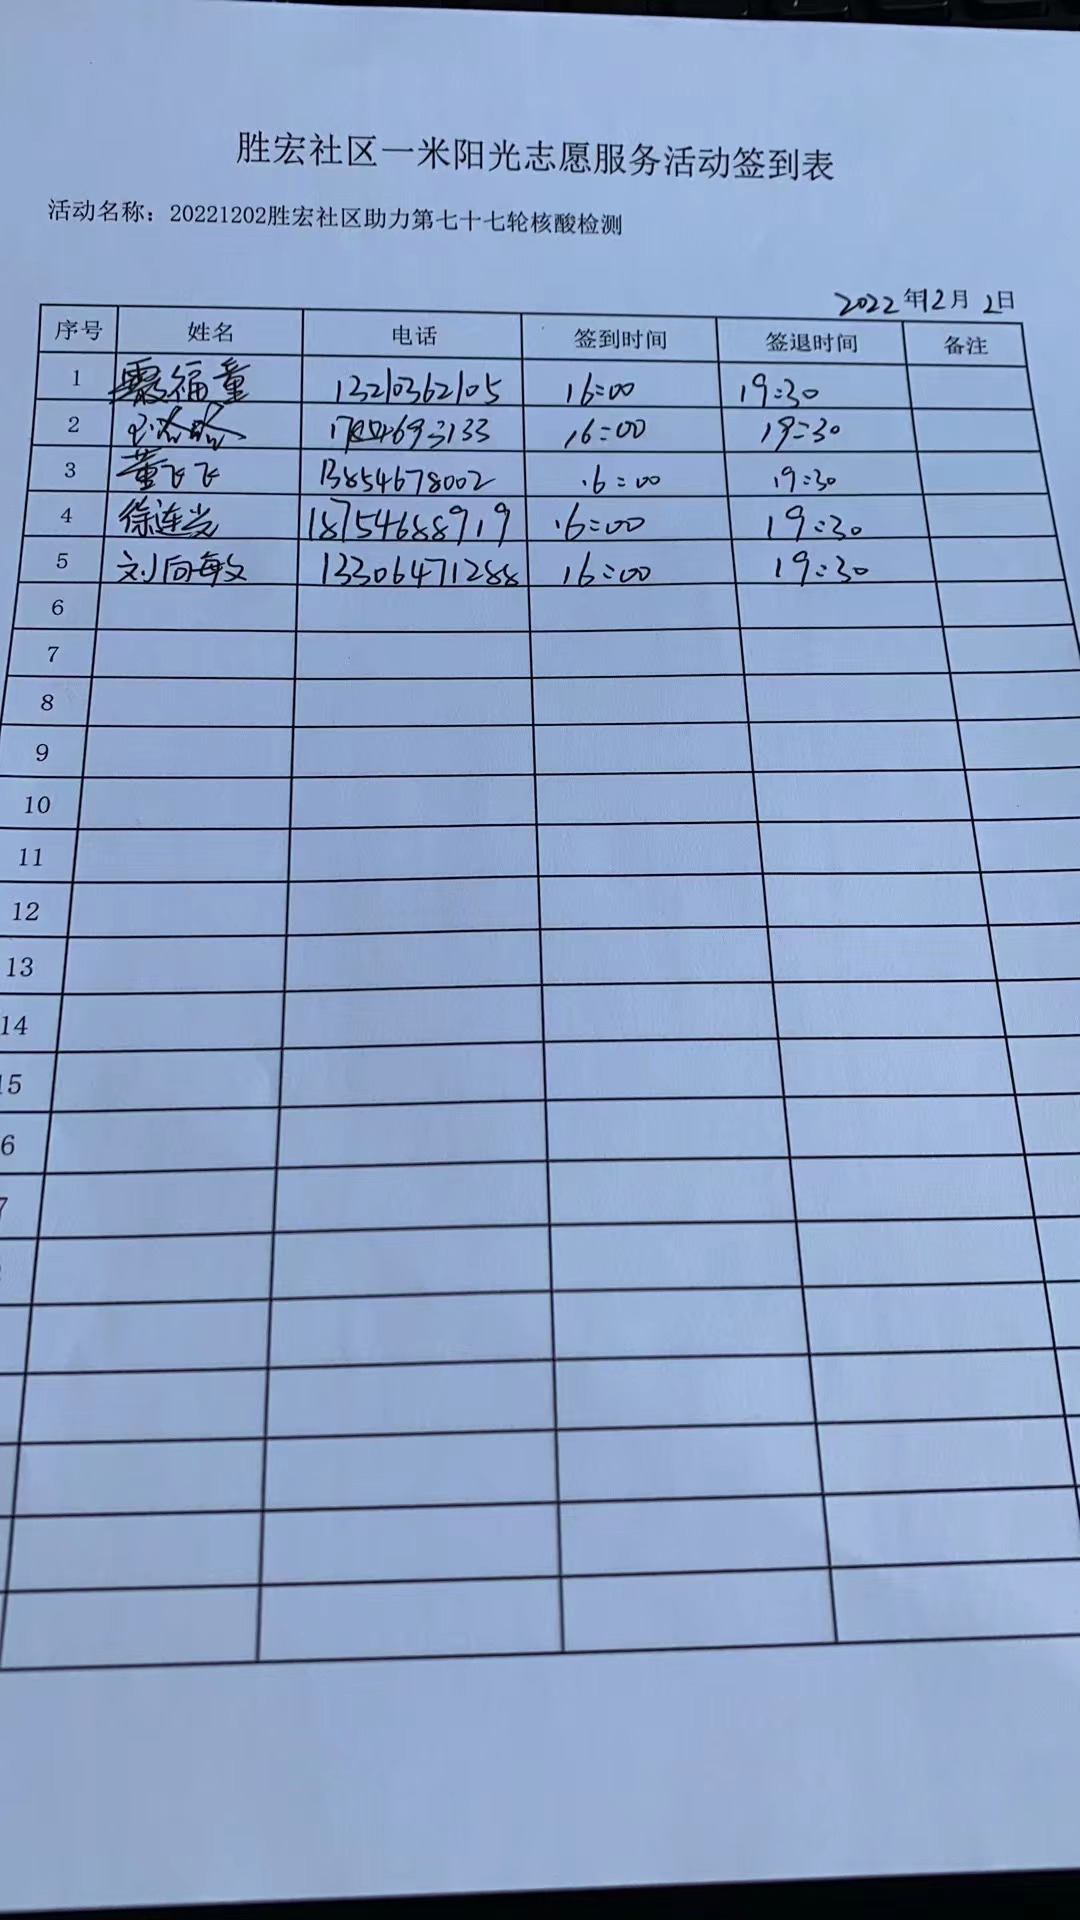 胜宏社区一米阳光志愿服务活动签到表
活动名称：20221202胜宏社区助力第七十七轮核酸检测
2022年12月2日
序号 姓名 电话 签到时间 签退时间 备注
1 福童 13210362105 16:00 19:30
2 16:00 19:30
3 董飞飞 13854678002 16:00 19:30
4 徐连光 18754688919 16:00 19:30
5 刘向敏 13306471288 16:00 19:30
6
7
8
9
10
11
12
13
14
15
6
7